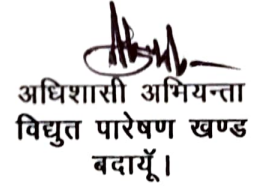 अधिशासी अभियन्ता
विद्युत पारेषण खण्ड
बदायूॅ।